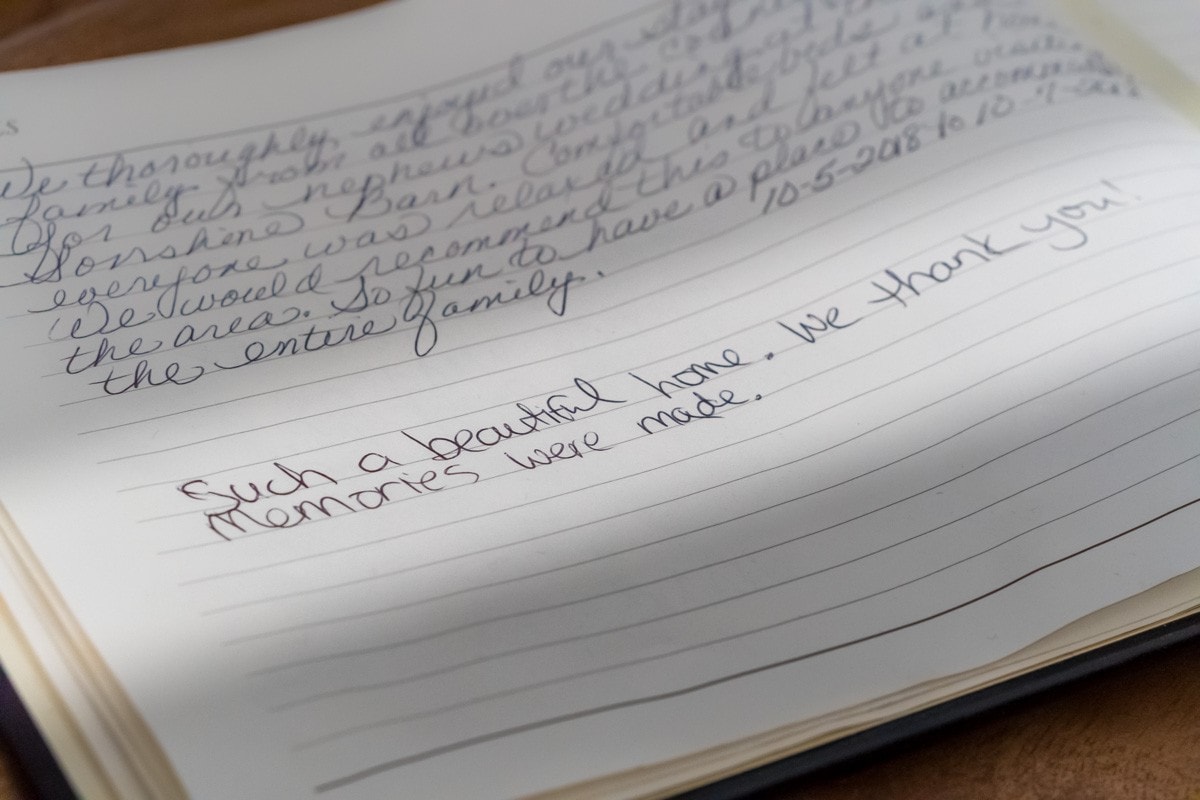 We thoroughly enjoyed our stay
family from all over the
for our nephews wedding at
Sonshine Barn. Comfortable beds and
everyone was relaxed and felt at home
We would recommend this to anyone visiting
the area. So fun to have a place to accommodate
the entire family. 10-5-2018 to 10-7-2018
Such a beautiful home. We thank you!
Memories were made.